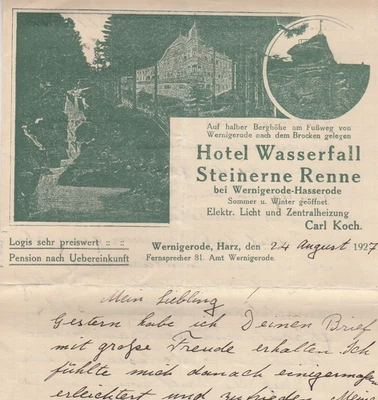 Auf halber Berghöhe am Fußweg von
Wernigerode nach dem Brocken gelegen
Hotel Wasserfall
Steinerne Renne
bei Wernigerode-Hasserode
Sommer u. Winter geöffnet.
Elektr. Licht und Zentralheizung
Carl Koch.
Logis sehr preiswert :: ::
Pension nach Uebereinkunft
Wernigerode, Harz, den 24 August 1927
Fernsprecher 81. Amt Wernigerode.
Mein Liebling!
Gestern habe ich Deinen Brief
mit große Freude erhalten. Ich
fühlte mich danach einigermaßen
erleichtert und zufrieden. Meine